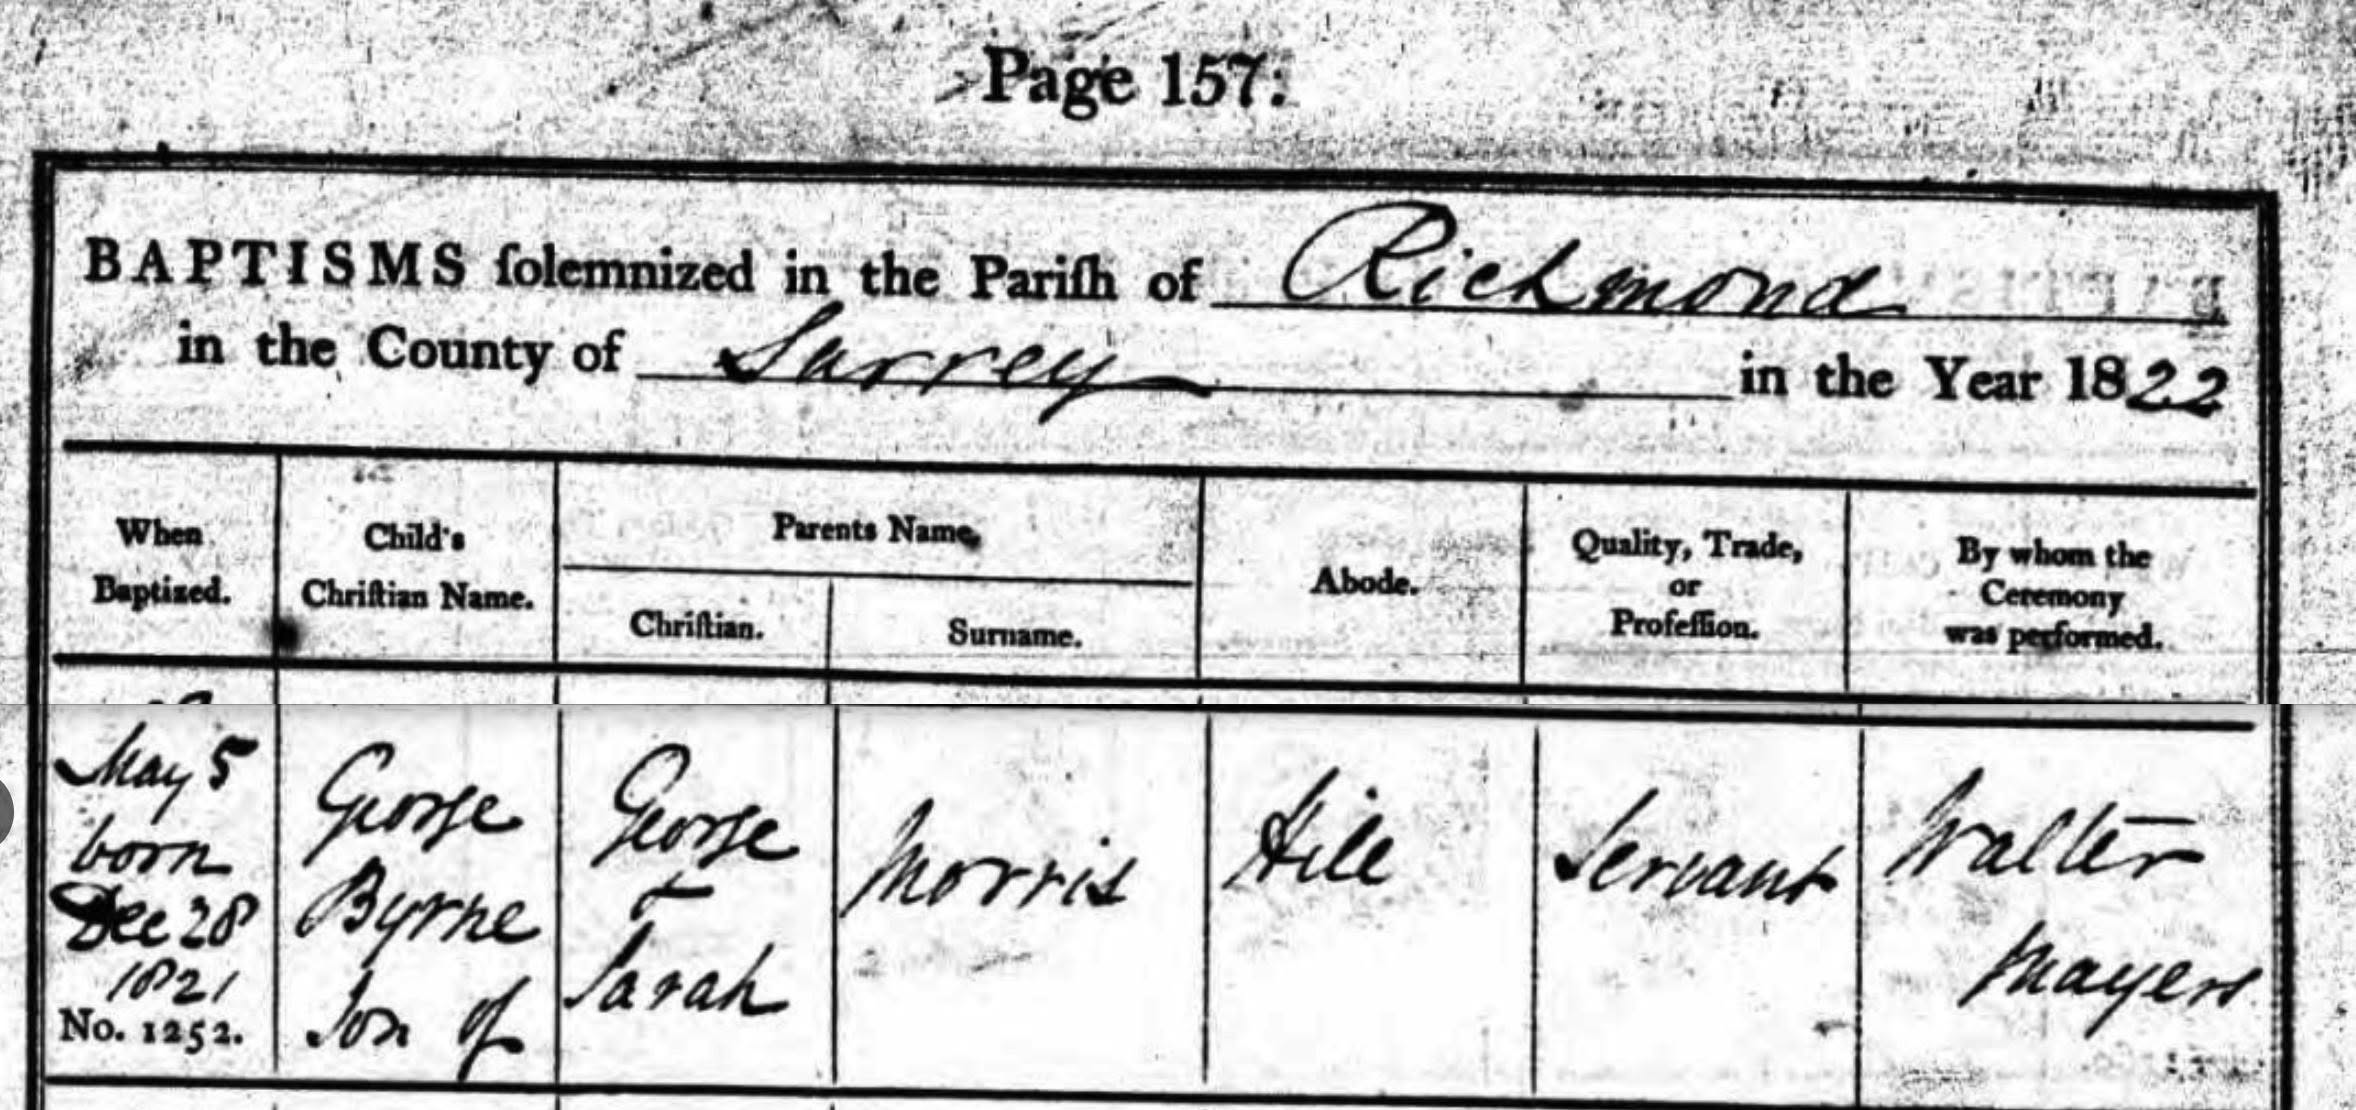 Page 157.
BAPTISMS ſolemnized in the Pariſh of Richmond
in the County of Surrey in the Year 1822
When
Baptized.
Child's
Chriſtian Name.
Parents Name.
Chriſtian.
Surname.
Abode.
Quality, Trade,
or
Profeſſion.
By whom the
Ceremony
was performed.
May 5
born
Dec 28
1821
No. 1252.
George
Byrne
Son of
George
&
Sarah
Morris
Hill
Servant
Walter
Mayers